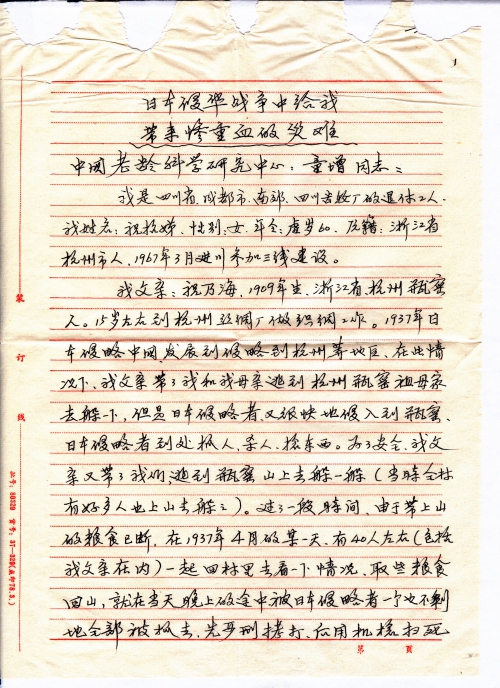 1
日本侵华战争中给我
带来惨重血的灾难
中国老龄科学研究中心：童增同志：
我是四川省、成都市、南郊、四川 厂的退休工人.
我姓名：祝 娣、性别：女、年令：虚岁60、 籍：浙江省
杭州市人，1967年3月进川参加三线建设。
我父亲：祝乃海，1909年生，浙江省、杭州瓶窑
人。15岁左右到杭州丝绸厂做织绸工作。1937年日
本侵略中国发展到侵略到杭州等地区，在此情
况下、我父亲带了我和我母亲逃到杭州瓶窑祖母家
去躲一下，但是日本侵略者、又很快地侵入到瓶窑、
日本侵略者到处抓人、杀人、抢东西。为了安全、我父
亲又带了我们逃到瓶窑山上去躲一躲（当时全村
有好多人也上山去躲了）。过了一段时间、由于带上山
的粮食已断，在1937年4月的某一天、有40人左右（包括
我父亲在内）一起回村里去看一下情况、取些粮食
回山，就在当天晚上的途中被日本侵略者一个也不剩
地全部被抓去、先严刑拷打、后用机枪扫死
装
订
线
批号：80329 货号：31—329(成印78.9.)
第 页